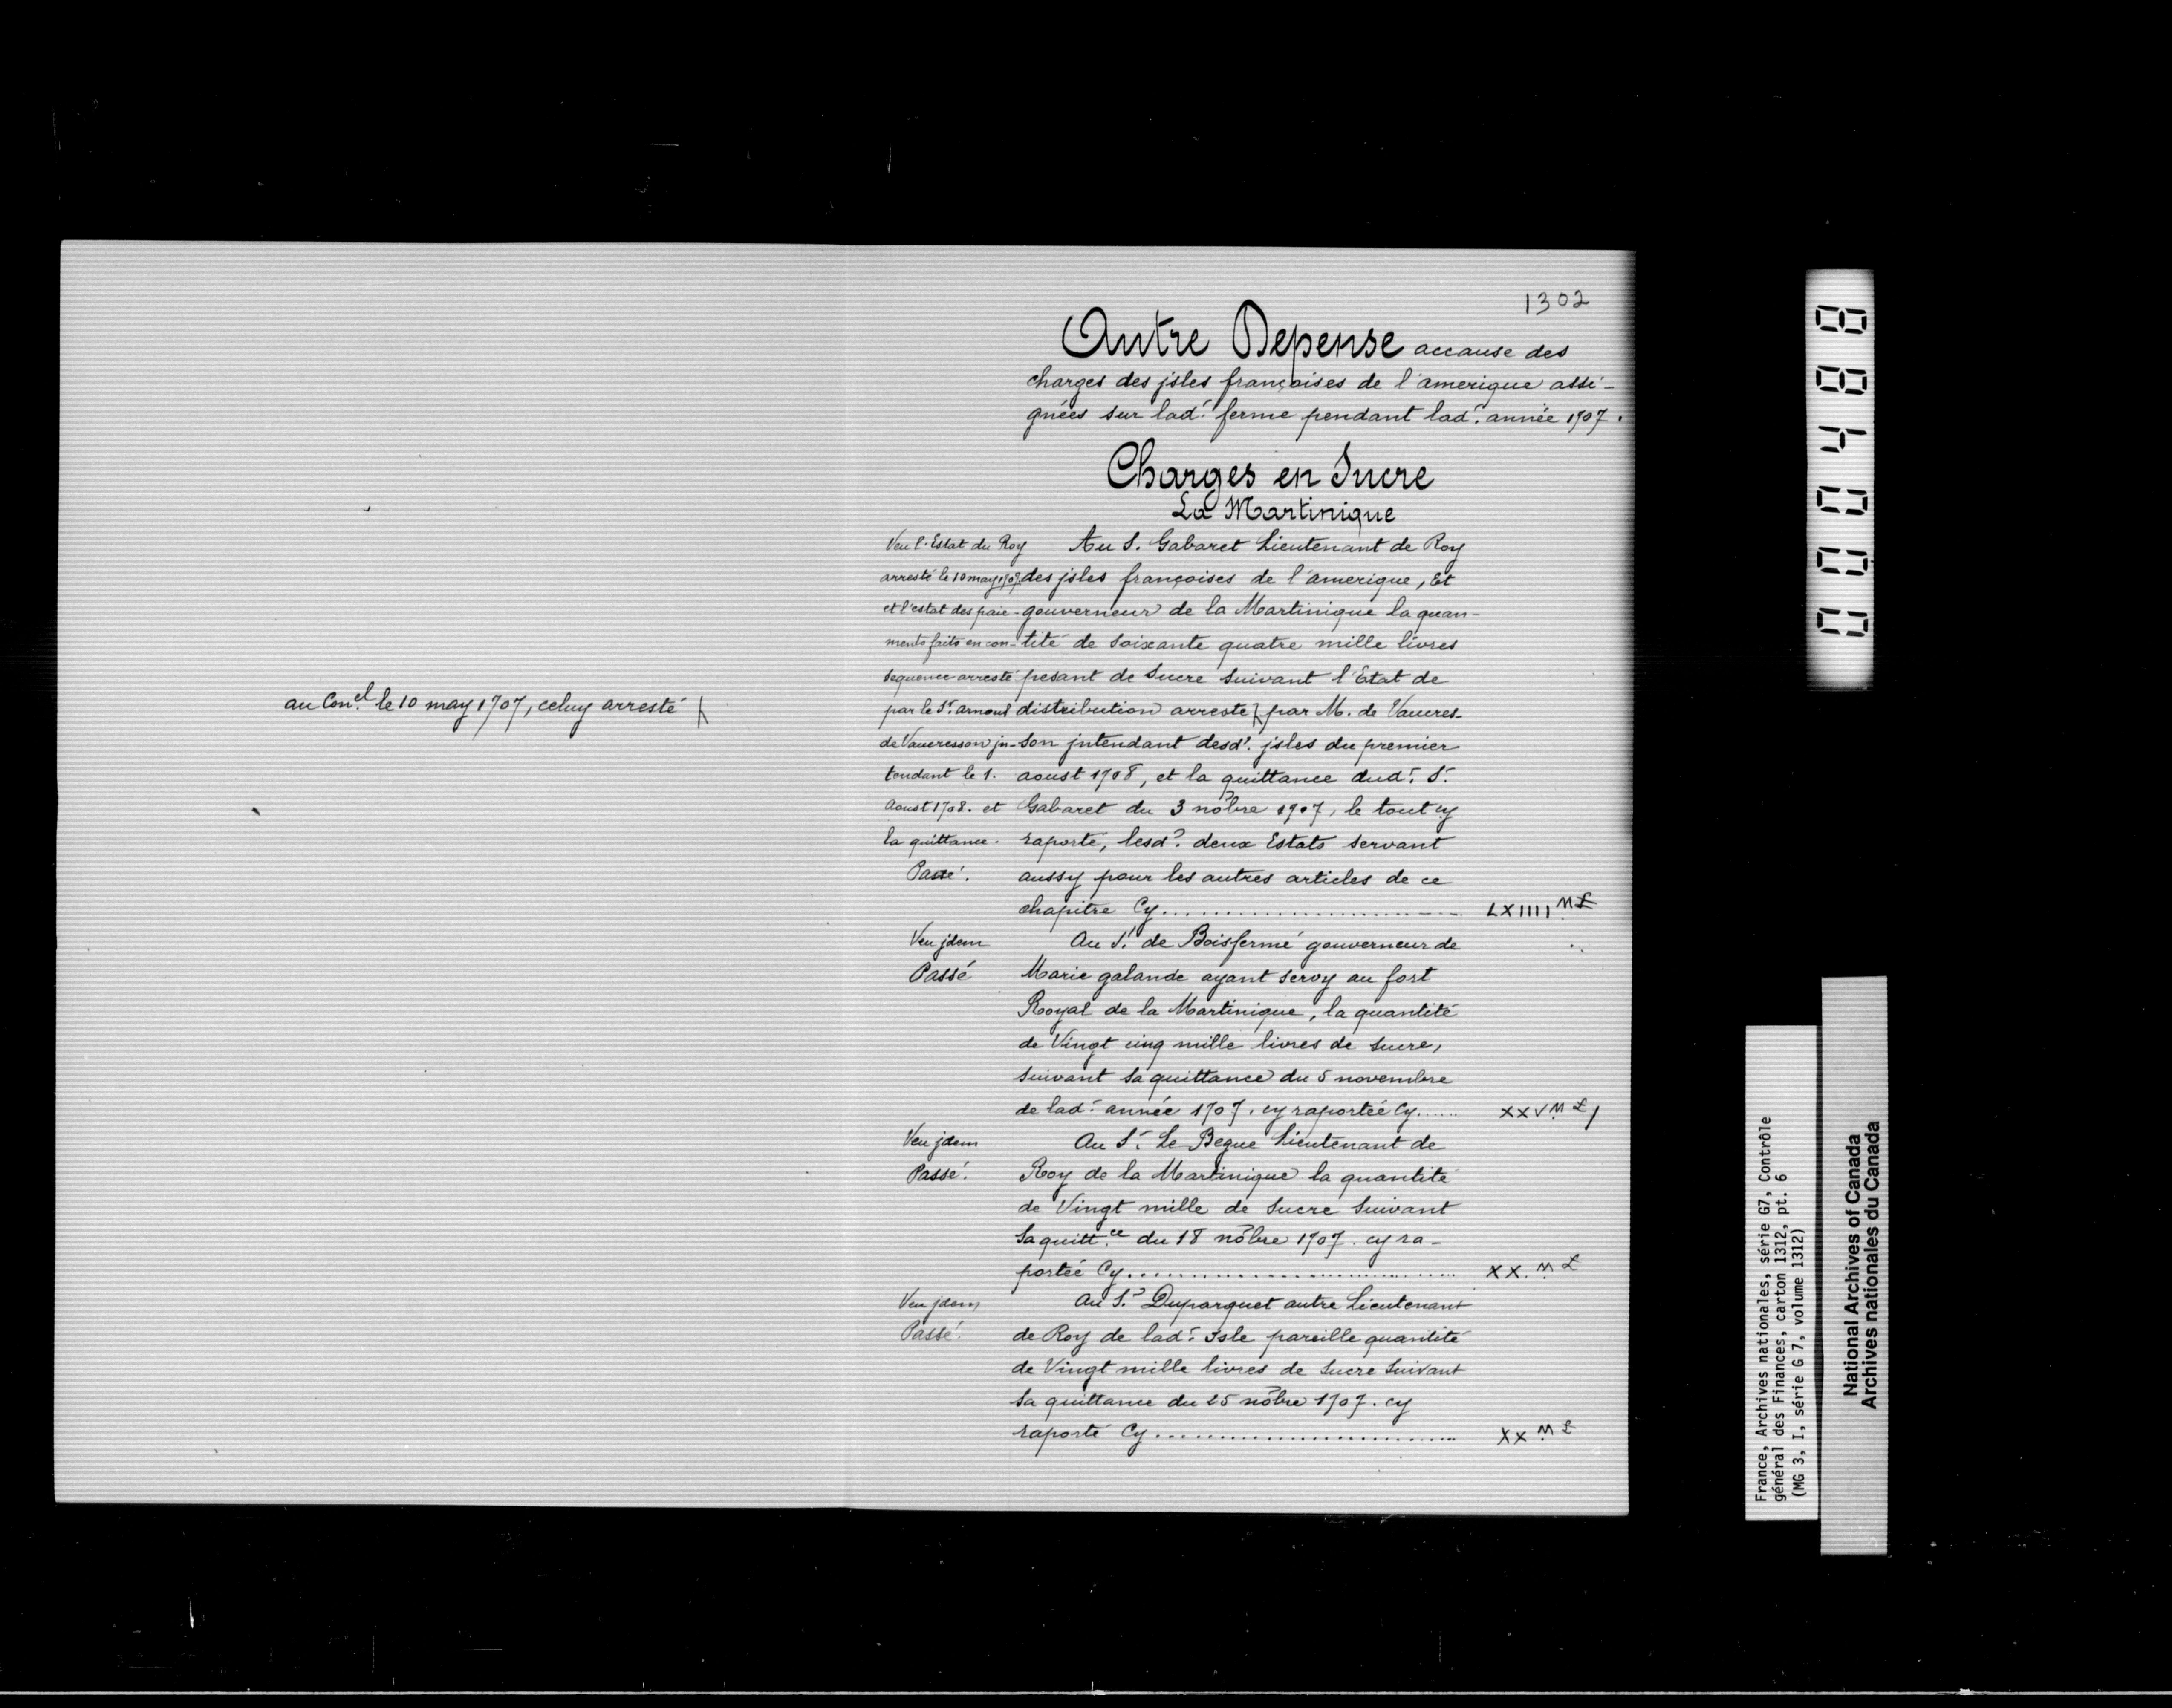 au Con.el le 10 may 1707, celuy arresté
1302
Autre Depense accause des
charges des jsles françoises de l'amerique assi-
gnées sur lad. ferme pendant lad. année 1707.
Charges en Sucre
La Martinique
Veu l'Estat du Roy
arresté le 10 may 1707
et l'estat des paie-
ments faits en con-
sequence arresté
par le Sr. arnoul
de Vaucresson jn-
tendant le 1.
Aoust 1708. et
la quittance.
Passé.
Au S. Gabaret Lieutenant de Roy
des jsles françoises de l'amerique, Et
gouverneur de la Martinique la quan-
tité de soixante quatre mille livres
pesant de Sucre suivant l'Etat de
distribution arresté par M. de Vaucres-
son jntendant desd. jsles du premier
aoust 1708, et la quittance dud. S.
Gabaret du 3 nobre 1707, le tout cy
raporté, lesd. deux Estats servant
aussy pour les autres articles de ce
chapitre Cy........................ LXIIII M £
Veu jdem
Passé
Au S. de Boisfermé gouverneur de
Marie galande ayant servy au fort
Royal de la Martinique, la quantité
de Vingt cinq mille livres de sucre,
suivant sa quittance du 5 novembre
de lad. année 1707. cy raportée Cy...... XXV M £
Veu jdem
Passé.
Au S. Le Begue Lieutenant de
Roy de la Martinique la quantité
de Vingt mille de Sucre Suivant
Sa quitt.ce du 18 nobre 1707. cy ra-
portée Cy.............................. XX. M £
Veu jdem
Passé.
Au S. Duparquet autre Lieutenant
de Roy de lad. Isle pareille quantité
de Vingt mille livres de Sucre Suivant
sa quittance du 25 nobre 1707. cy
raporté Cy.......................... XX M £
000488
France, Archives nationales, série G7, Contrôle
général des Finances, carton 1312, pt. 6
(MG 3, I, série G 7, volume 1312)
National Archives of Canada
Archives nationales du Canada